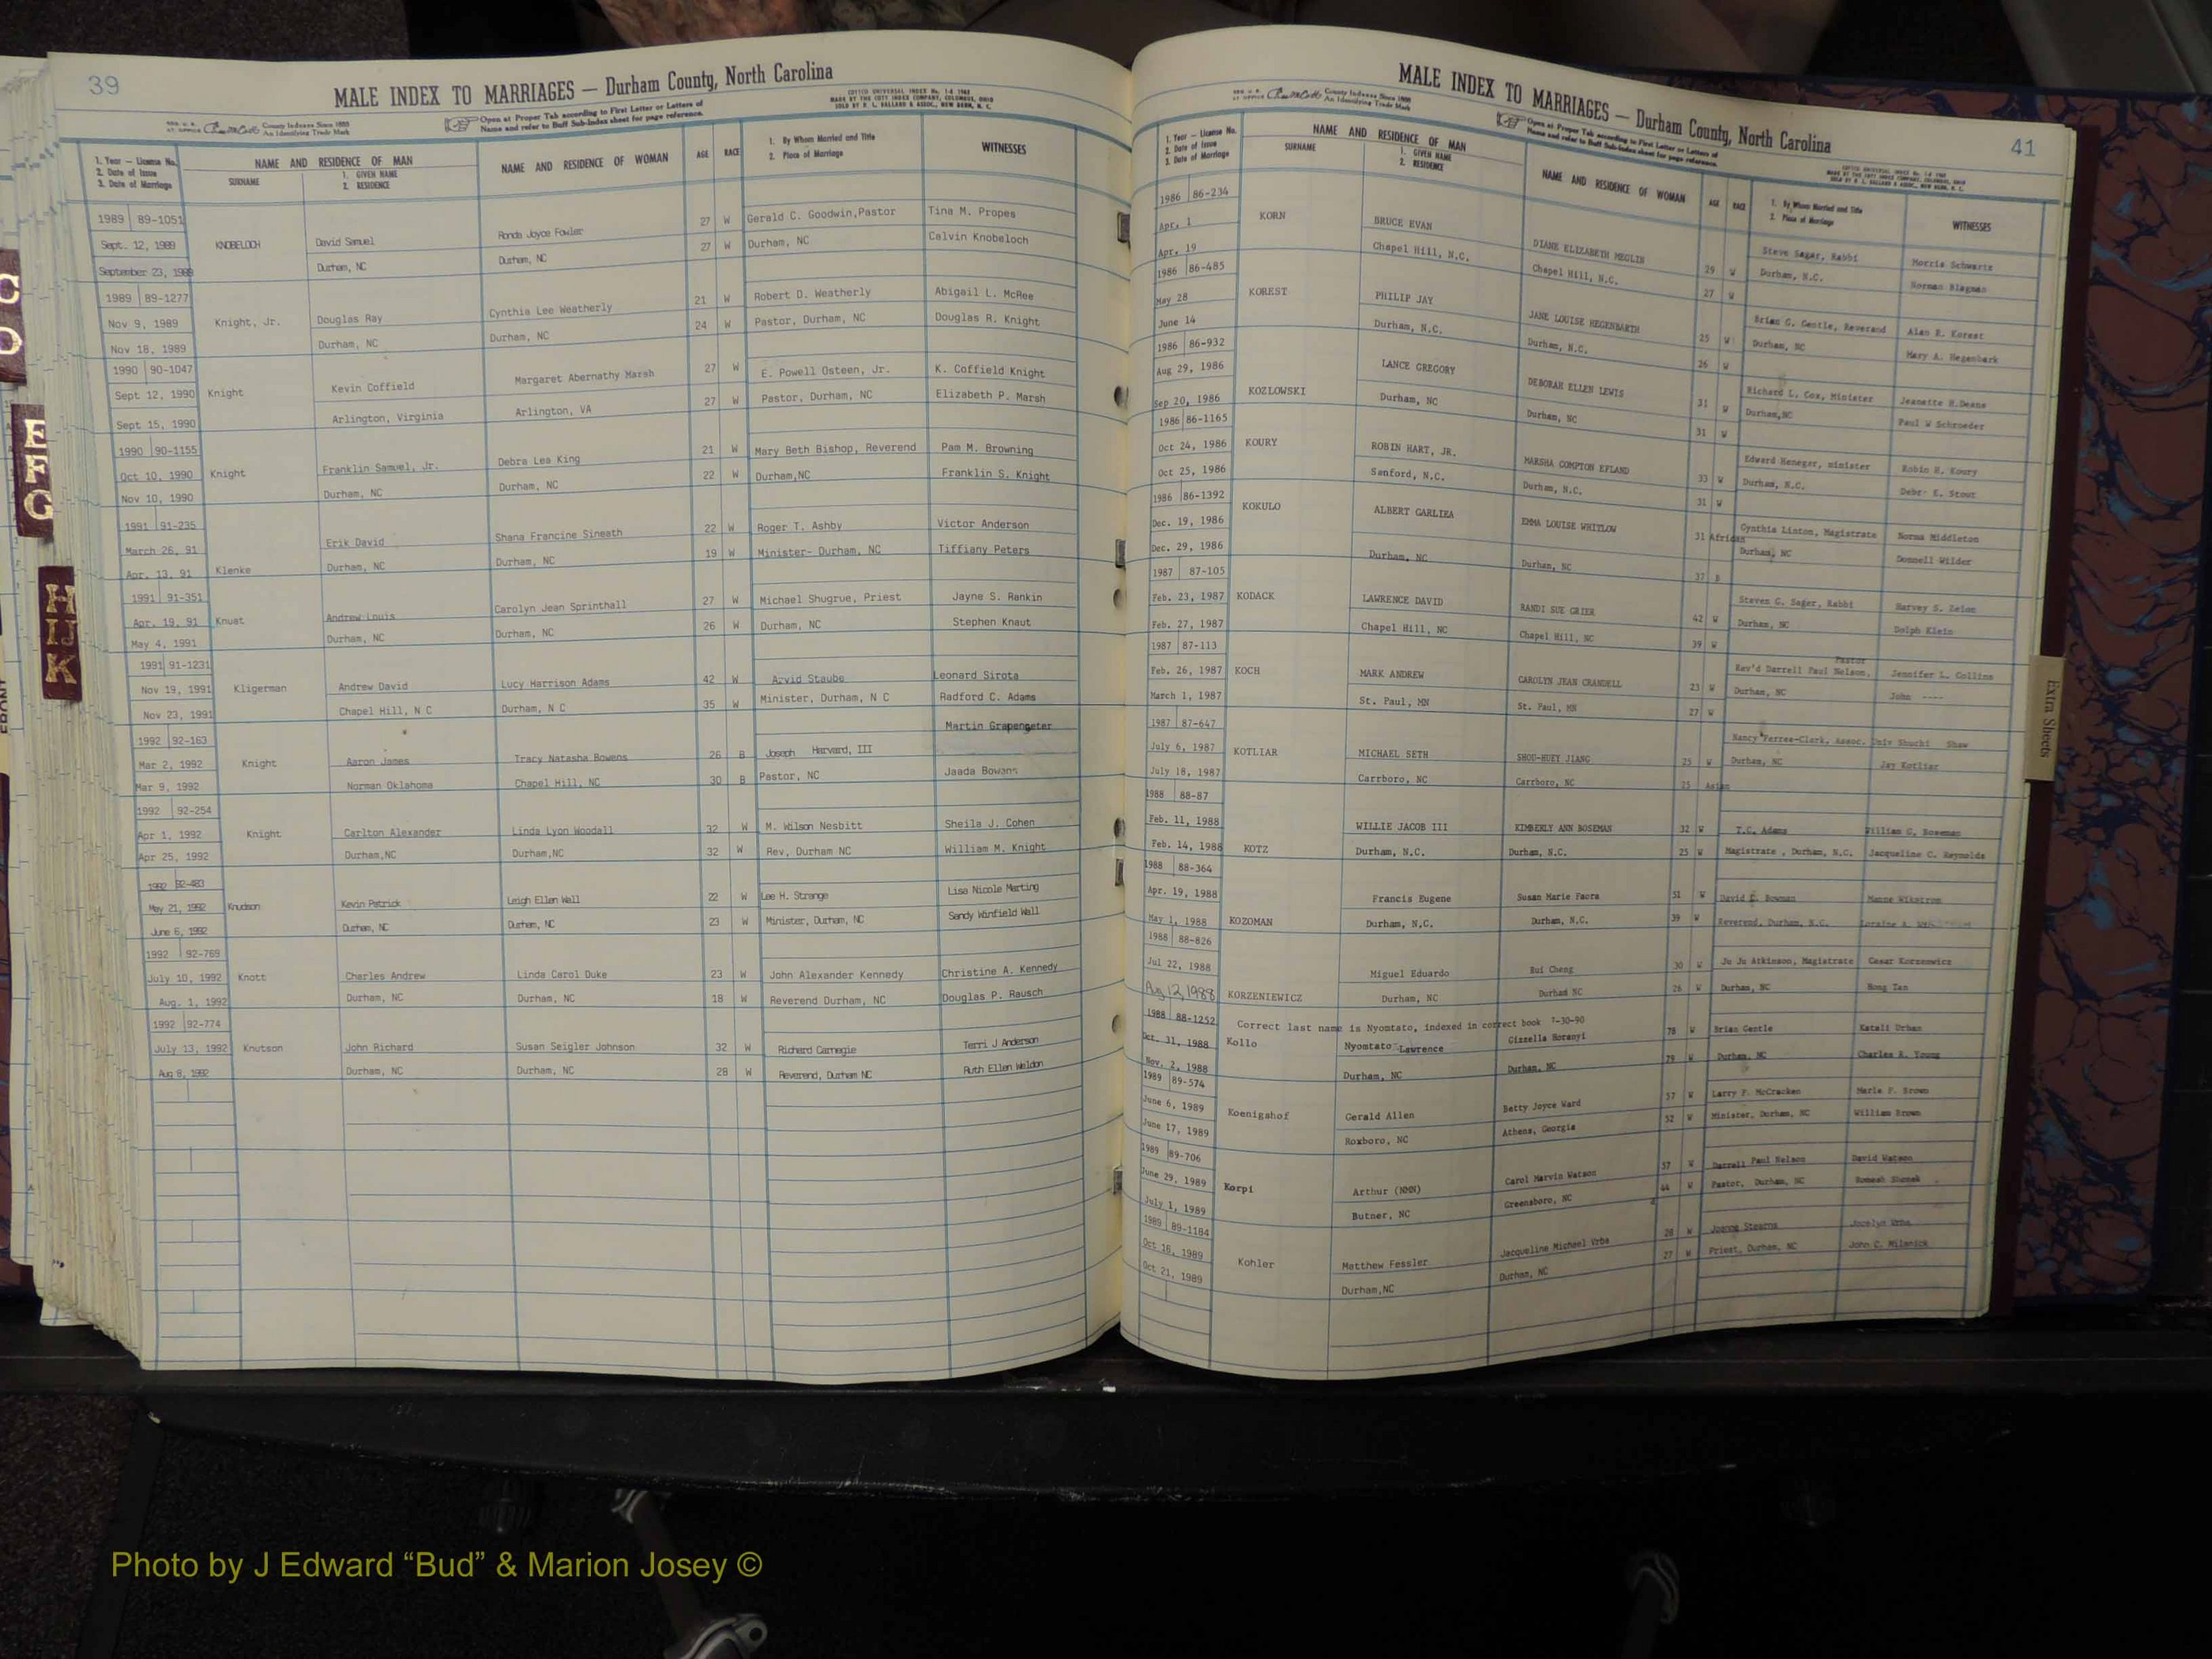 39
MALE INDEX TO MARRIAGES — Durham County, North Carolina
County Indexes Since 1888
An Identifying Trade Mark
Open at Proper Tab according to First Letter or Letters of
Name and refer to Buff Sub-Index sheet for page reference.
1. Year — License No.
2. Date of Issue
3. Date of Marriage
NAME AND RESIDENCE OF MAN
SURNAME
1. GIVEN NAME
2. RESIDENCE
NAME AND RESIDENCE OF WOMAN
AGE
RACE
1. By Whom Married and Title
2. Place of Marriage
WITNESSES
1989 89-1051 27 W Gerald C. Goodwin,Pastor Tina M. Propes
Sept. 12, 1989 KNOBELOCH David Samuel Ronda Joyce Fowler 27 W Durham, NC Calvin Knobeloch
September 23, 1989 Durham, NC Durham, NC
1989 89-1277 Cynthia Lee Weatherly 21 W Robert D. Weatherly Abigail L. McRee
Nov 9, 1989 Knight, Jr. Douglas Ray Durham, NC 24 W Pastor, Durham, NC Douglas R. Knight
Nov 18, 1989 Durham, NC
1990 90-1047 Margaret Abernathy Marsh 27 W E. Powell Osteen, Jr. K. Coffield Knight
Sept 12, 1990 Knight Kevin Coffield Arlington, VA 27 W Pastor, Durham, NC Elizabeth P. Marsh
Sept 15, 1990 Arlington, Virginia
1990 90-1155 21 W Mary Beth Bishop, Reverend Pam M. Browning
Oct 10, 1990 Knight Franklin Samuel, Jr. Debra Lea King 22 W Durham,NC Franklin S. Knight
Nov 10, 1990 Durham, NC Durham, NC
1991 91-235 Shana Francine Sineath 22 W Roger T. Ashby Victor Anderson
March 26, 91 Erik David Durham, NC 19 W Minister- Durham, NC Tiffiany Peters
Apr. 13, 91 Klenke Durham, NC
1991 91-351 Carolyn Jean Sprinthall 27 W Michael Shugrue, Priest Jayne S. Rankin
Apr. 19, 91 Knuat Andrew Louis Durham, NC 26 W Durham, NC Stephen Knaut
May 4, 1991 Durham, NC
1991 91-1231 Lucy Harrison Adams 42 W Arvid Staube Leonard Sirota
Nov 19, 1991 Kligerman Andrew David Durham, N C 35 W Minister, Durham, N C Radford C. Adams
Nov 23, 1991 Chapel Hill, N C Martin Grapengeter
1992 92-163 Tracy Natasha Bowens 26 B Joseph Harvard, III
Mar 2, 1992 Knight Aaron James Chapel Hill, NC 30 B Pastor, NC Jaada Bowans
Mar 9, 1992 Norman Oklahoma
1992 92-254 32 W M. Wilson Nesbitt Sheila J. Cohen
Apr 1, 1992 Knight Carlton Alexander Linda Lyon Woodall 32 W Rev, Durham NC William M. Knight
Apr 25, 1992 Durham,NC Durham,NC
1992 92-483 22 W Lee H. Strange Lisa Nicole Marting
May 21, 1992 Knudson Kevin Patrick Leigh Ellen Wall 23 W Minister, Durham, NC Sandy Winfield Wall
June 6, 1992 Durham, NC Durham, NC
1992 92-769
July 10, 1992 Knott Charles Andrew Linda Carol Duke 23 W John Alexander Kennedy Christine A. Kennedy
Aug. 1, 1992 Durham, NC Durham, NC 18 W Reverend Durham, NC Douglas P. Rausch
1992 92-774
July 13, 1992 Knutson John Richard Susan Seigler Johnson 32 W Richard Carnegie Terri J Anderson
Aug 8, 1992 Durham, NC Durham, NC 28 W Reverend, Durham NC Ruth Ellen Weldon
C
D
E
F
G
H
IJ
K
MALE INDEX TO MARRIAGES — Durham County, North Carolina
41
County Indexes Since 1888
An Identifying Trade Mark
Open at Proper Tab according to First Letter or Letters of
Name and refer to Buff Sub-Index sheet for page reference.
1. Year — License No.
2. Date of Issue
3. Date of Marriage
NAME AND RESIDENCE OF MAN
SURNAME
1. GIVEN NAME
2. RESIDENCE
NAME AND RESIDENCE OF WOMAN
AGE
RACE
1. By Whom Married and Title
2. Place of Marriage
WITNESSES
1986 86-234
Apr. 1 KORN BRUCE EVAN DIANE ELIZABETH MEGLIN 29 W Steve Sagar, Rabbi Morris Schwartz
Apr. 19 Chapel Hill, N.C. Chapel Hill, N.C. 27 W Durham, N.C. Norman Blagman
1986 86-485
May 28 KOREST PHILIP JAY JANE LOUISE HEGENBARTH 25 W Brian G. Gentle, Reverend Alan R. Korest
June 14 Durham, N.C. Durham, N.C. 26 W Durham, NC Mary A. Hegenbark
1986 86-932
Aug 29, 1986 LANCE GREGORY DEBORAH ELLEN LEWIS 31 W Richard L. Cox, Minister Jeanette H.Deans
Sep 20, 1986 KOZLOWSKI Durham, NC Durham, NC 31 W Durham,NC Paul W Schroeder
1986 86-1165
Oct 24, 1986 KOURY ROBIN HART, JR. MARSHA COMPTON EFLAND 33 W Edward Heneger, minister Robin H. Koury
Oct 25, 1986 Sanford, N.C. Durham, N.C. 31 W Durham, N.C. E. Stout
1986 86-1392
Dec. 19, 1986 KOKULO ALBERT GARLIEA EMMA LOUISE WHITLOW 31 African Cynthia Linton, Magistrate Norma Middleton
Dec. 29, 1986 Durham, NC Durham, NC 37 B Durham, NC Donnell Wilder
1987 87-105
Feb. 23, 1987 KODACK LAWRENCE DAVID RANDI SUE GRIER 42 W Steven G. Sager, Rabbi Harvey S. Zeion
Feb. 27, 1987 Chapel Hill, NC Chapel Hill, NC 39 W Durham, NC Dolph Klein
1987 87-113
Feb. 26, 1987 KOCH MARK ANDREW CAROLYN JEAN CRANDELL 23 W Rev'd Darrell Paul Nelson, Pastor Jennifer L. Collins
March 1, 1987 St. Paul, MN St. Paul, MN 27 W Durham, NC John ----
1987 87-647
July 6, 1987 KOTLIAR MICHAEL SETH SHOU-HUEY JIANG 25 W Nancy Ferree-Clark, Assoc. Univ Shuchi Shaw
July 18, 1987 Carrboro, NC Carrboro, NC 25 Asian Durham, NC Jay Kotliar
1988 88-87
Feb. 11, 1988 WILLIE JACOB III KIMBERLY ANN BOSEMAN 32 W T.C. Adams William G. Boseman
Feb. 14, 1988 KOTZ Durham, N.C. Durham, N.C. 25 W Magistrate , Durham, N.C. Jacqueline C. Reynolds
1988 88-364
Apr. 19, 1988 Francis Eugene Susan Marie Faora 51 W David E. Bowman Wikstrom
May 1, 1988 KOZOMAN Durham, N.C. Durham, N.C. 39 W Reverend, Durham, N.C. Loraine A.
1988 88-826
Jul 22, 1988 Miguel Eduardo Rui Cheng 30 W Ju Ju Atkinson, Magistrate Cesar Korzenwicz
Aug 12, 1988 KORZENIEWICZ Durham, NC Durham NC 26 W Durham, NC Hong Tan
1988 88-1252 Correct last name is Nyomtato, indexed in correct book 7-30-90
Oct. 31, 1988 Kollo Nyomtato Lawrence Gizzella Horanyi 78 W Brian Gentle Katali Urban
Nov. 2, 1988 Durham, NC Durham, NC 79 W Durham, NC Charles R. Young
1989 89-574
June 6, 1989 Koenigshof Gerald Allen Betty Joyce Ward 57 W Larry P. McCracken Marie F. Brown
June 17, 1989 Roxboro, NC Athens, Georgia 52 W Minister, Durham, NC William Brown
1989 89-706
June 29, 1989 Korpi Arthur (NMN) Carol Marvin Watson 57 W Darrell Paul Nelson David Watson
July 1, 1989 Butner, NC Greensboro, NC 44 W Pastor, Durham, NC
1989 89-1184
Oct 16, 1989 Kohler Matthew Fessler Jacqueline Michael Vrba 28 W Joanne Stearns Jocelyn Vrba
Oct 21, 1989 Durham,NC Durham, NC 27 W Priest, Durham, NC John C. Milanick
Extra Sheets
Photo by J Edward “Bud” & Marion Josey ©